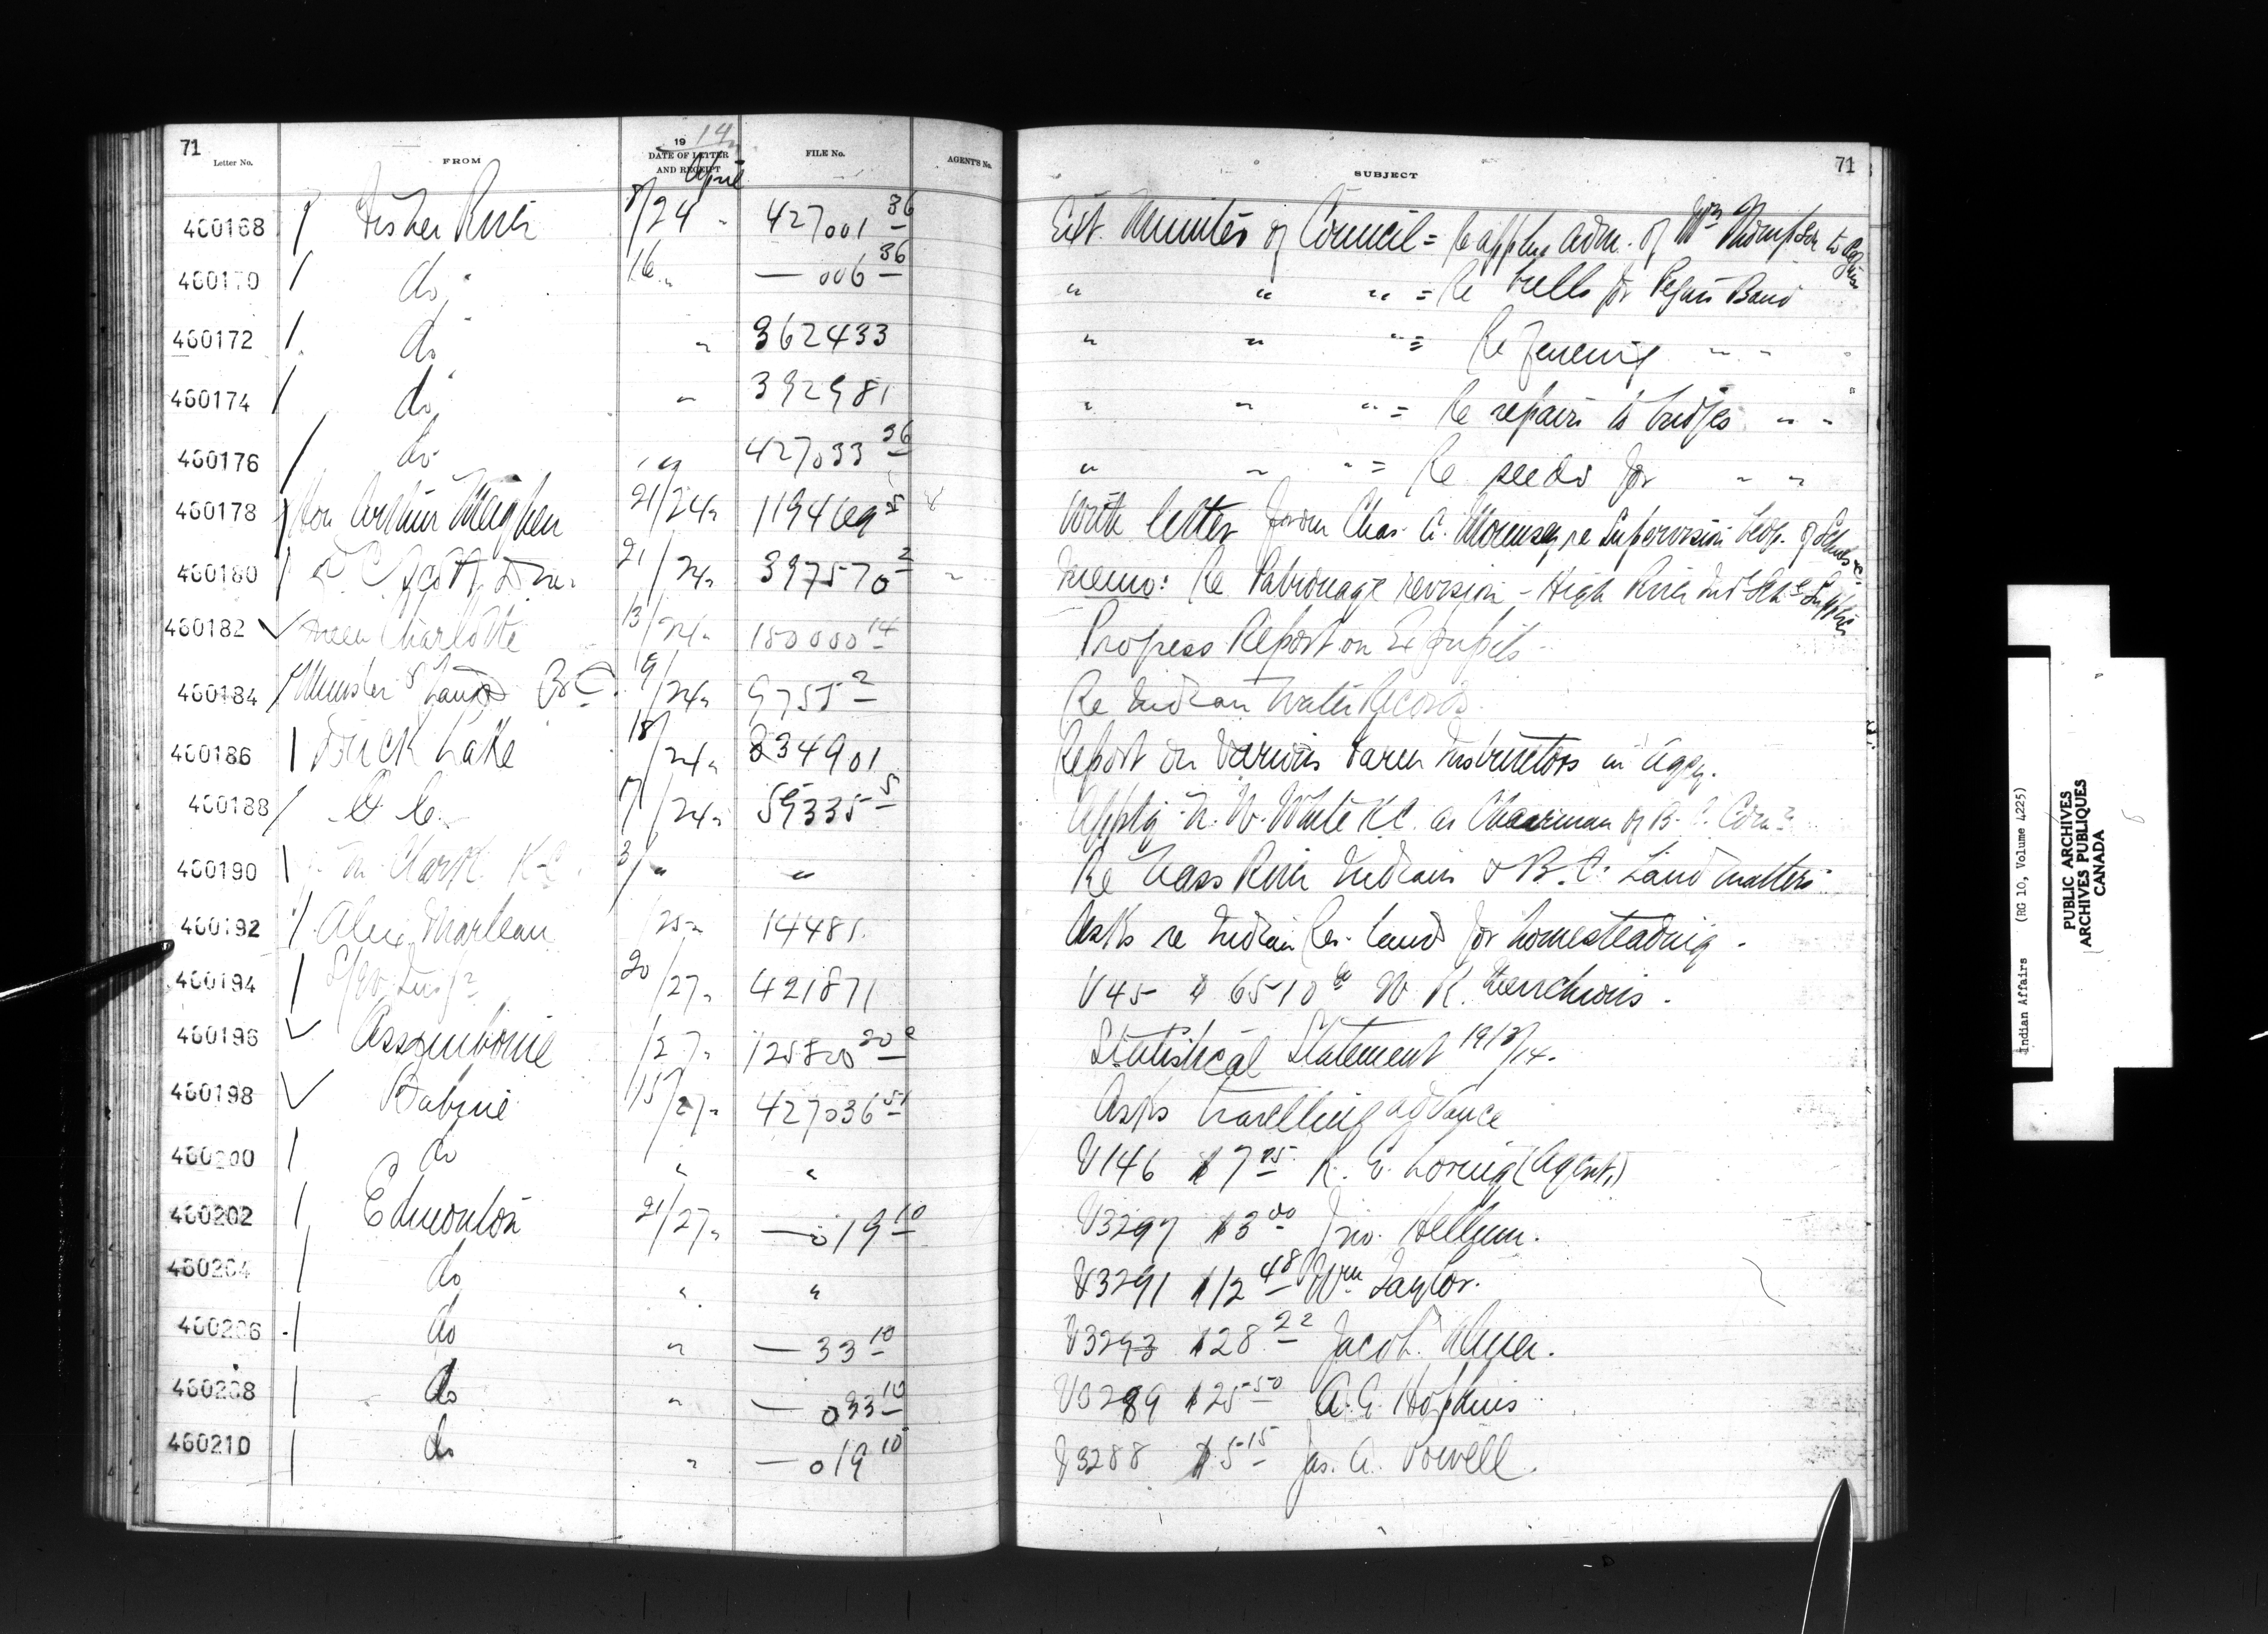 71
Letter No. FROM 1914 DATE OF LETTER AND RECEIPT April FILE No. AGENT'S No. SUBJECT 71
460168 Fisher River 8/24 " 427001 36 Ext. Minutes of Council = Re applcn adm. of Wm Thompson to
460170 do 16 " — 006 36 " " " = Re bulls for Peguis Band
460172 do " 362433 " " " = Re Fencing " "
460174 do " 392981 " " " = Re repairs to bridges " "
460176 do " 427033 36 " " " = Re seeds for " "
460178 Hon Arthur Meighen 21/24 " 119469 5 With letter from Chas. A. re Supervision of Schools &c
460180 D. C. Scott, 21/24 " 397570 2 Memo: Re Patronage revision - High River Ind Sch Supplies
460182 Queen Charlotte 13/24 " 150000 14 Progress Report on Ex pupils
460184 Minister of Lands B.C. 19/24 " 9755 2 Re Indian Water Records
460186 Duck Lake 18/24 " 334901 Report on various Farm Instructors in Agcy.
460188 O C. 7/24 " 59335 5 Appt'g N. W. White K.C. as Chairman of B.C. Comn
460190 Clark K.C. 3/ " " Re Nass River Indians & B.C. Land matters
460192 Alex Marleau /25 " 14485 Asks re Indian Res. land for homesteading.
460194 20/27 " 421871 V45 $ 6510 W R.
460196 Assiniboine /27 " 125800 20 Statistical Statement 1913/14.
460198 Babine 15/27 " 427036 51 Asks travelling advance
460200 do " " V146 $7 75 R. E. Loring (Agent.)
460202 Edmonton 21/27 " — 019 10 V3297 $3 00 Jno.
460204 do " " V3291 $12 48 Wm Taylor.
460206 do " — 33 10 V3293 $28 22 Jacob
460208 do " — 033 10 V3289 $25 50 A. G. Hopkins
460210 do " — 019 10 V3288 $5 15 Jas. A. Powell.
Indian Affairs (RG 10, Volume 4225)
PUBLIC ARCHIVES
ARCHIVES PUBLIQUES
CANADA